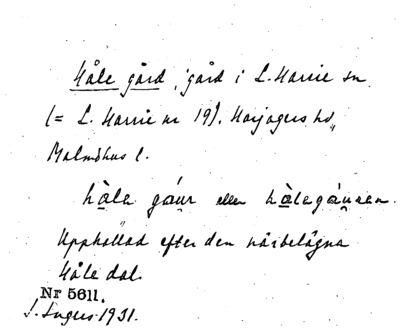 Håle gård, gård i L. Harrie sn
(= L. Harrie nr 19). Harjagers hd,
Malmöhus l.
håle gáur eller hålegáuren.
Uppkallad efter den närbelägna
Håle dal.
Nr 5611.
I. Ingers 1931.